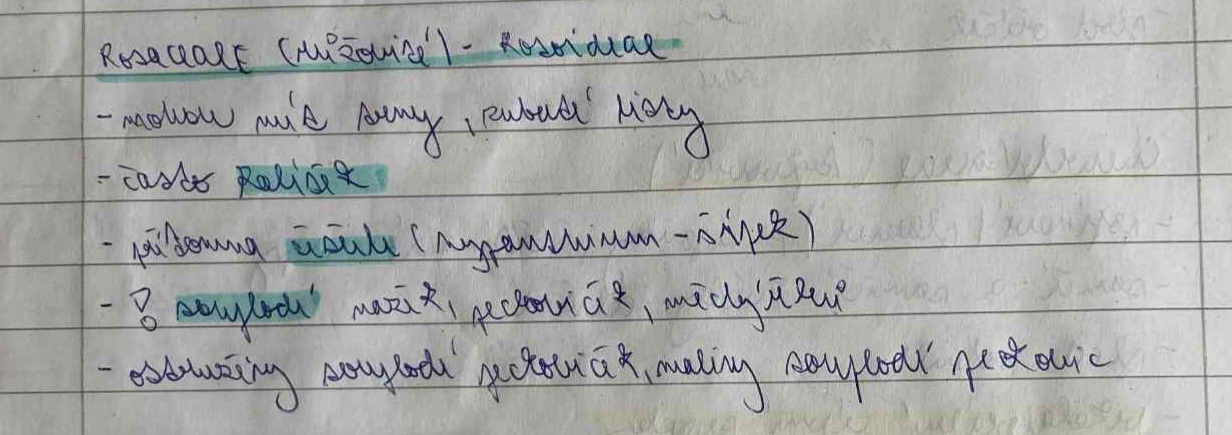 Rosaceae (růžovité) - Rosoideae
- mohou mít trny, zubaté listy
- často kalíšek
- přítomna češule (hypanthium - šípek)
- ? souplodí nažek, peckoviček, měchýřků
- ostružiny souplodí peckoviček, maliny souplodí peckovic